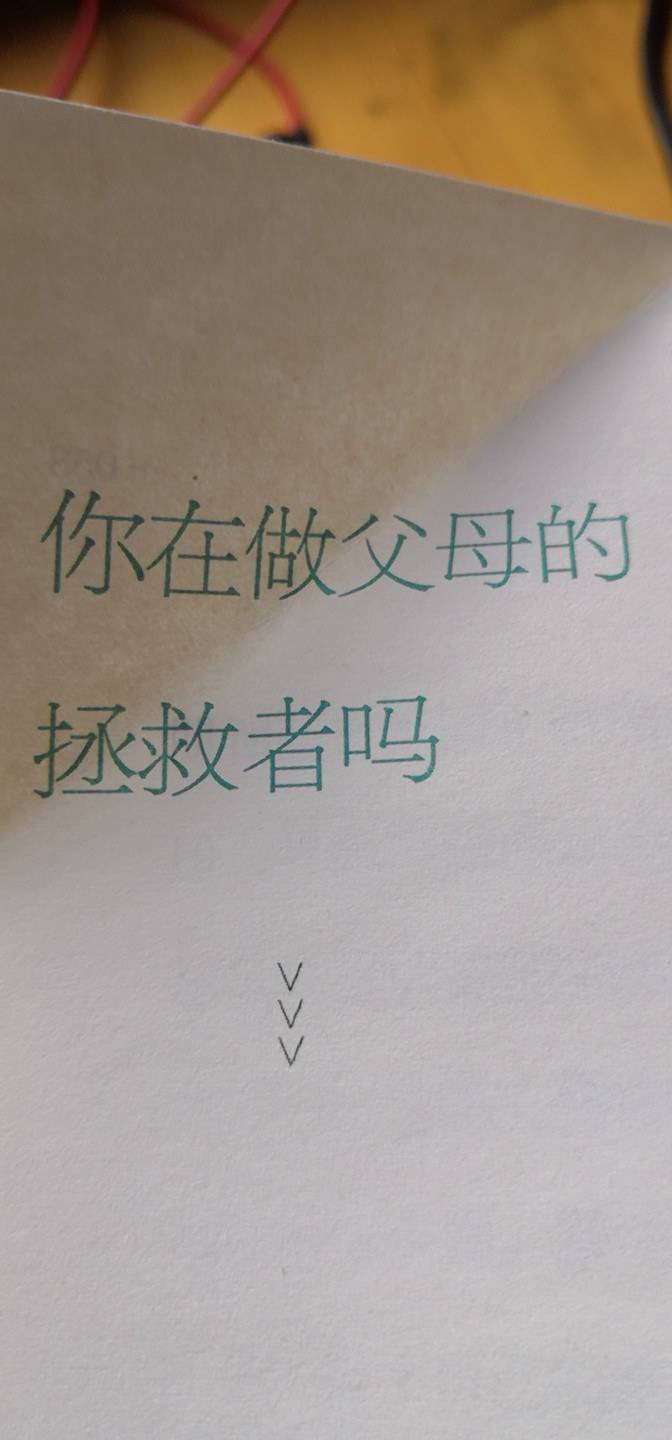 你在做父母的
拯救者吗